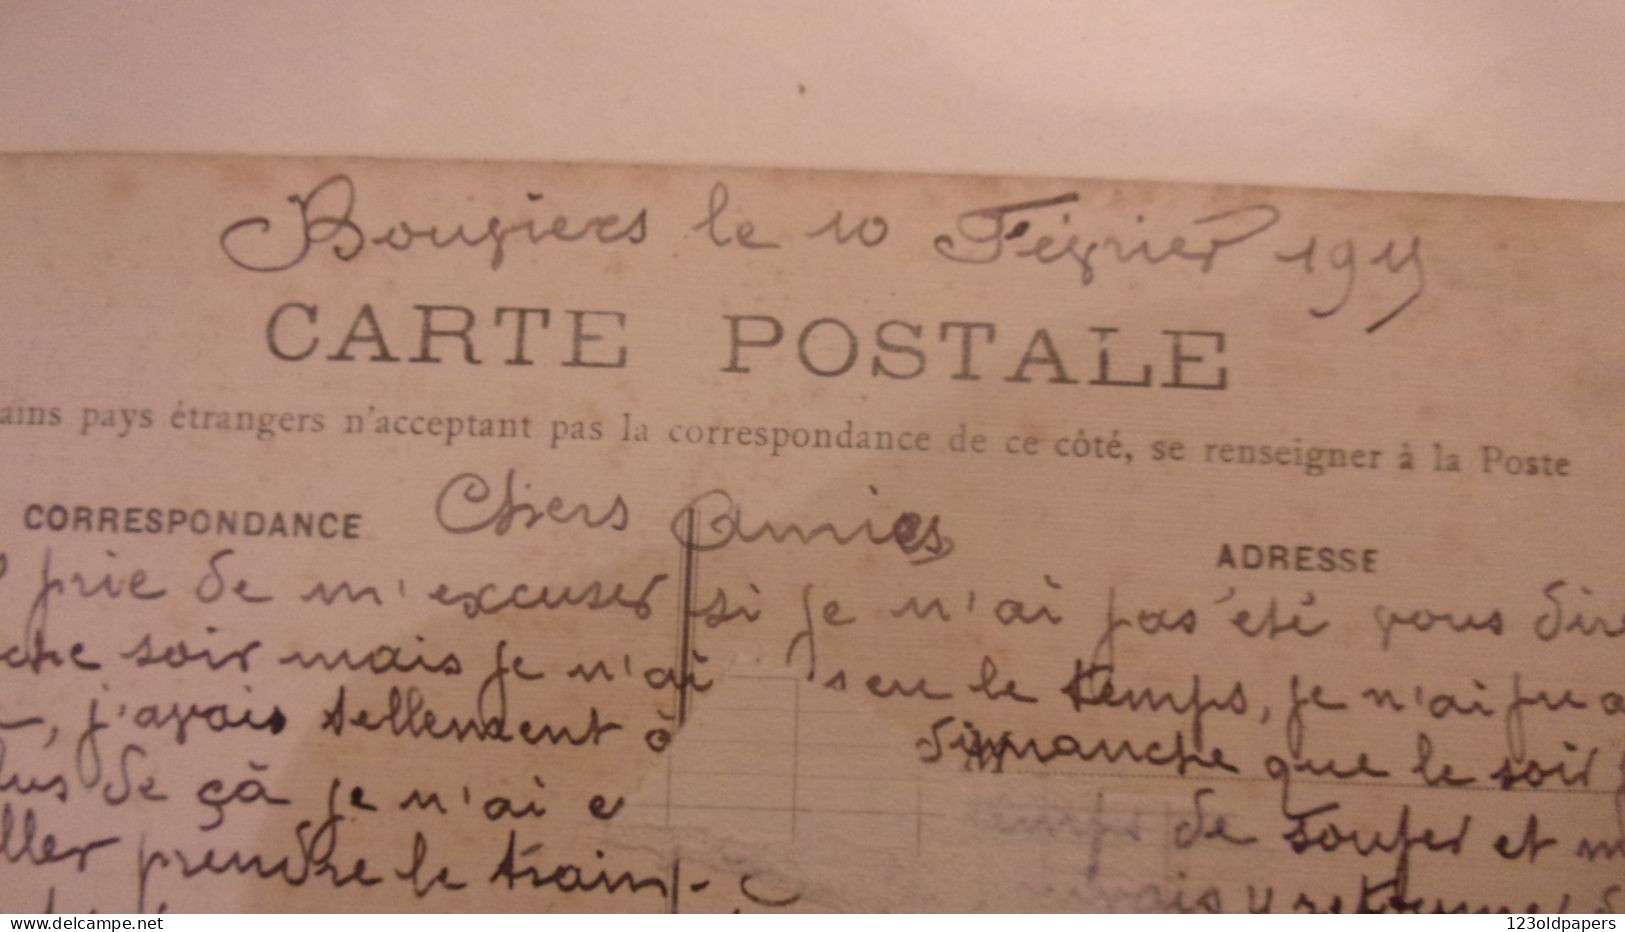 Bougiers le 10 Février 1915
CARTE POSTALE
ains pays étrangers n'acceptant pas la correspondance de ce côté, se renseigner à la Poste
CORRESPONDANCE
Chers Amies
ADRESSE
prie de m'excuser si je n'ai pas été vous dire
soir mais je n'ai eu le temps, je n'ai pu a
, j'avais tellement à dimanche que le soir
lus de çà je n'ai e temps de souper et m
ller prendre le train
delcampe.net
123oldpapers